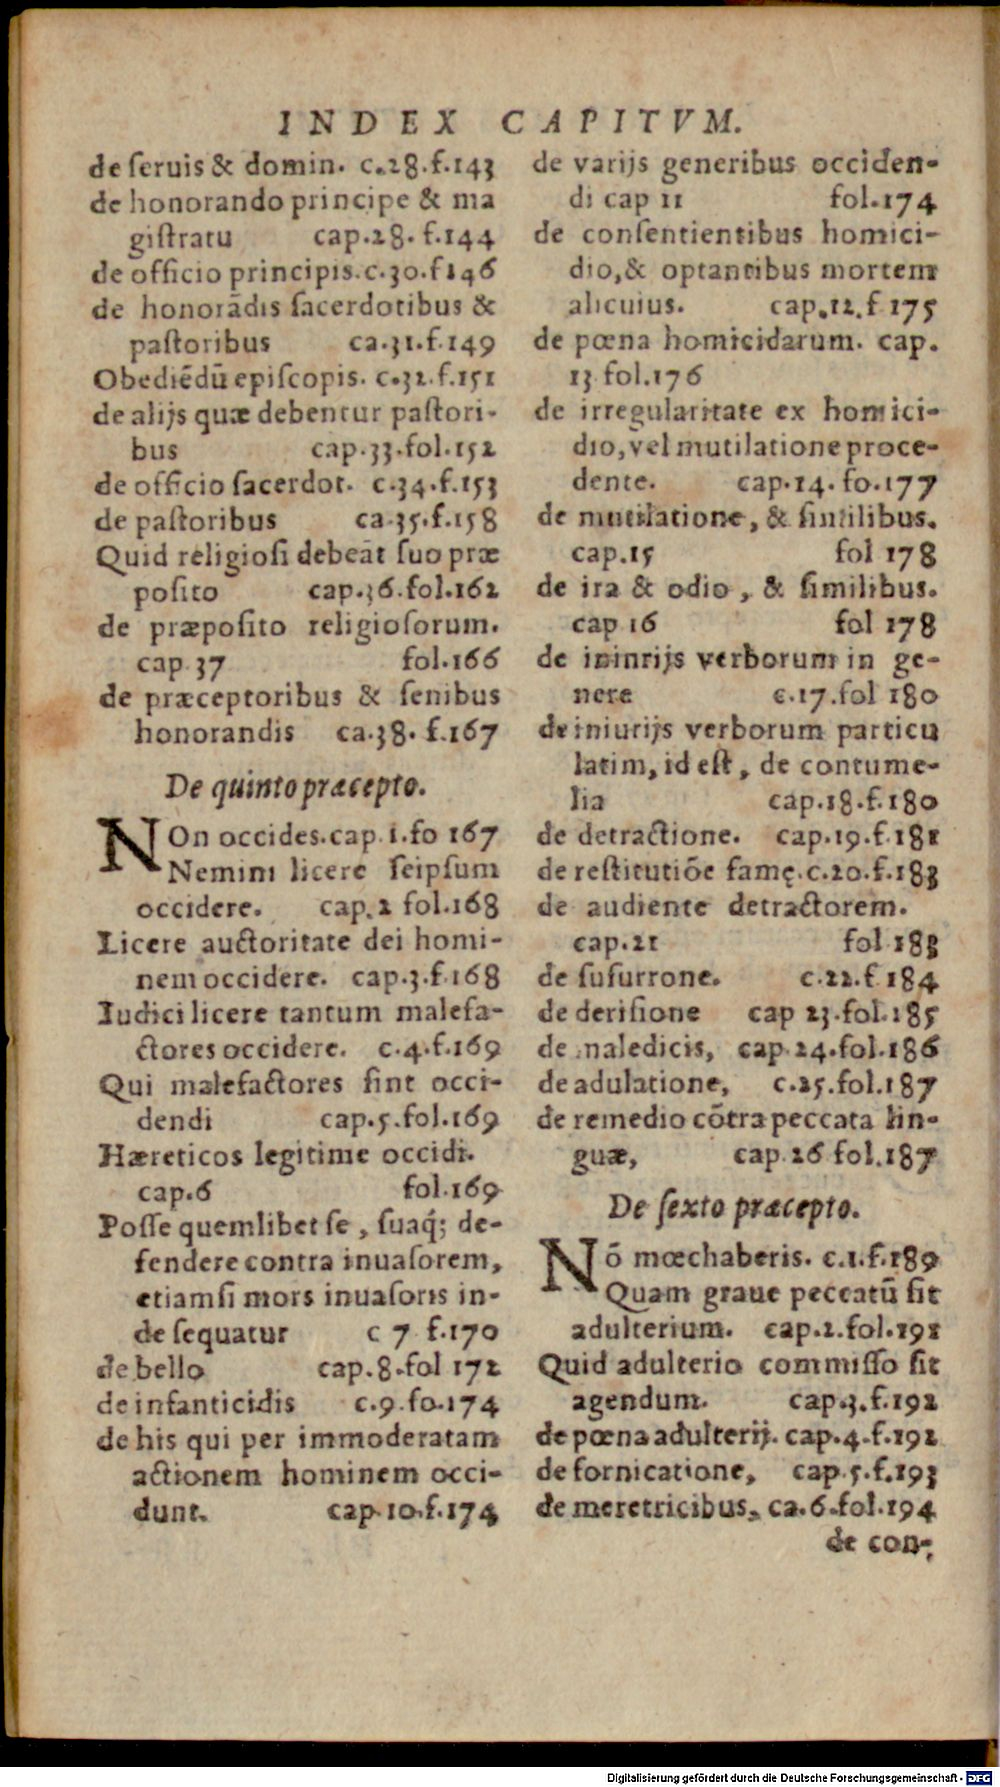 INDEX CAPITVM.
de ſeruis & domin. c.28.f.143
de honorando principe & ma
giſtratu cap.28. f.144
de officio principis.c.30.f146
de honorādis ſacerdotibus &
paſtoribus ca.31.f.149
Obediēdū epiſcopis. c.32.f.151
de alijs quæ debentur paſtori-
bus cap.33.fol.152
de officio ſacerdot. c.34.f.153
de paſtoribus ca.35.f.158
Quid religioſi debeāt ſuo præ
poſito cap.36.fol.162
de præpoſito religioſorum.
cap 37 fol.166
de præceptoribus & ſenibus
honorandis ca.38. f.167
De quinto præcepto.
NOn occides.cap.1.fo 167
Nemini licere ſeipſum
occidere. cap.2 fol.168
Licere auctoritate dei homi-
nem occidere. cap.3.f.168
Iudici licere tantum malefa-
ctores occidere. c.4.f.169
Qui malefactores ſint occi-
dendi cap.5.fol.169
Hæreticos legitime occidi.
cap.6 fol.169
Poſſe quemlibet ſe, ſuaq́; de-
fendere contra inuaſorem,
etiamſi mors inuaſoris in-
de ſequatur c 7 f.170
de bello cap.8.fol 172
de infanticidis c.9.fo.174
de his qui per immoderatam
actionem hominem occi-
dunt. cap.10.f.174
de varijs generibus occiden-
di cap 11 fol.174
de conſentientibus homici-
dio,& optantibus mortem
alicuius. cap.12.f 175
de pœna homicidarum. cap.
13 fol.176
de irregularitate ex homici-
dio, vel mutilatione proce-
dente. cap.14. fo.177
de mutilatione, & ſimilibus.
cap.15 fol 178
de ira & odio, & ſimilibus.
cap 16 fol 178
de ininrijs verborum in ge-
nere c.17.fol 180
de iniurijs verborum particu
latim, id eſt, de contume-
lia cap.18.f.180
de detractione. cap.19.f.181
de reſtitutiōe famę.c.20.f.183
de audiente detractorem.
cap.21 fol 183
de ſuſurrone. c.22.f 184
de deriſione cap 23.fol.185
de maledicis, cap 24.fol.186
de adulatione, c.25.fol.187
de remedio cōtra peccata lin-
guæ, cap 26 fol.187
De ſexto præcepto.
Nō mœchaberis. c.1.f.189
Quam graue peccatū ſit
adulterium. cap.2.fol.191
Quid adulterio commiſſo ſit
agendum. cap.3.f.192
de pœna adulterij. cap.4.f.192
de fornicatione, cap.5.f.193
de meretricibus, ca.6.fol.194
de con-
Digitalisierung gefördert durch die Deutsche Forschungsgemeinschaft - DFG